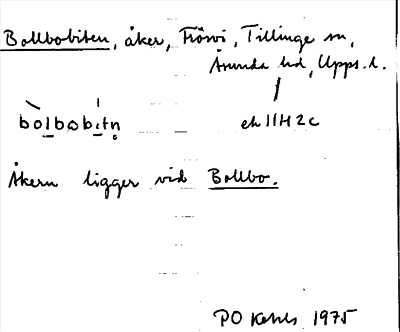 Bollbobiten, åker, Frösvi, Tillinge sn,
Åsunda hd, Upps. l.
bòlbobítn̥
ek 11H2c
Åkern ligger vid Bollbo.
PO 1975